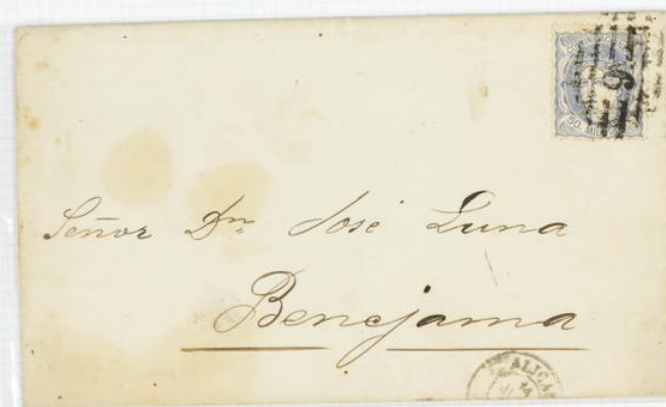 50 MIL
9
Señor Dn José Luna
Benejama
ALICA